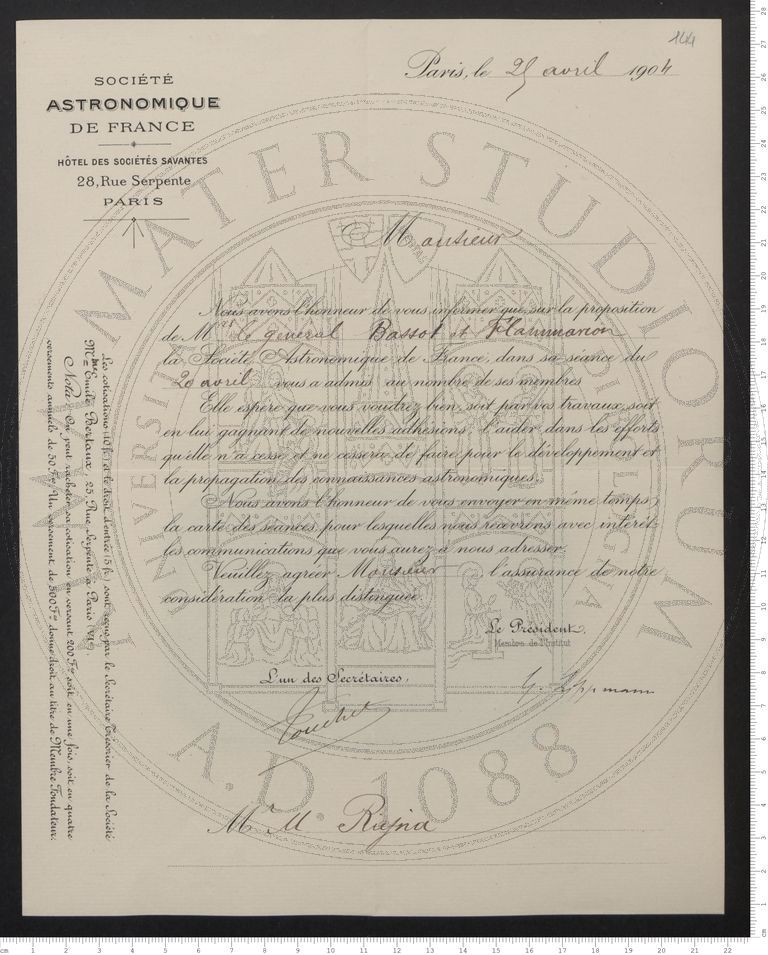 144
Paris, le 25 avril 1904
SOCIÉTÉ
ASTRONOMIQUE
DE FRANCE
HÔTEL DES SOCIÉTÉS SAVANTES
28, Rue Serpente
PARIS
Monsieur
Nous avons l'honneur de vous informer que, sur la proposition
de M.rs le général Bassot et Flammarion
la Société Astronomique de France, dans sa séance du
20 avril vous a admis au nombre de ses membres
Elle espère que vous voudrez bien, soit par vos travaux, soit
en lui gagnant de nouvelles adhésions, l'aider dans les efforts
qu'elle n'a cessé et ne cessera de faire pour le développement et
la propagation des connaissances astronomiques.
Nous avons l'honneur de vous envoyer en même temps
la carte des séances pour lesquelles nous recevrons avec intérêt
les communications que vous aurez à nous adresser.
Veuillez agréer Monsieur, l'assurance de notre
considération la plus distinguée
Le Président,
Membre de l'Institut
L'un des Secrétaires,
G. Lippmann
Touchet
Mr M Rajna
Les cotisations (10 fr.) et le droit d'entrée (5 fr.) sont reçus par le Secrétaire Trésorier de la Société
Mme Emile Bertaux, 25, Rue Serpente à Paris (VIe).
Nota: On peut racheter sa cotisation en versant 200 Frs soit en une fois, soit en quatre
versements annuels de 50 Frs Un versement de 300 Frs donne droit au titre de Membre Fondateur.
ALMA MATER STUDIORUM
A.D. 1088